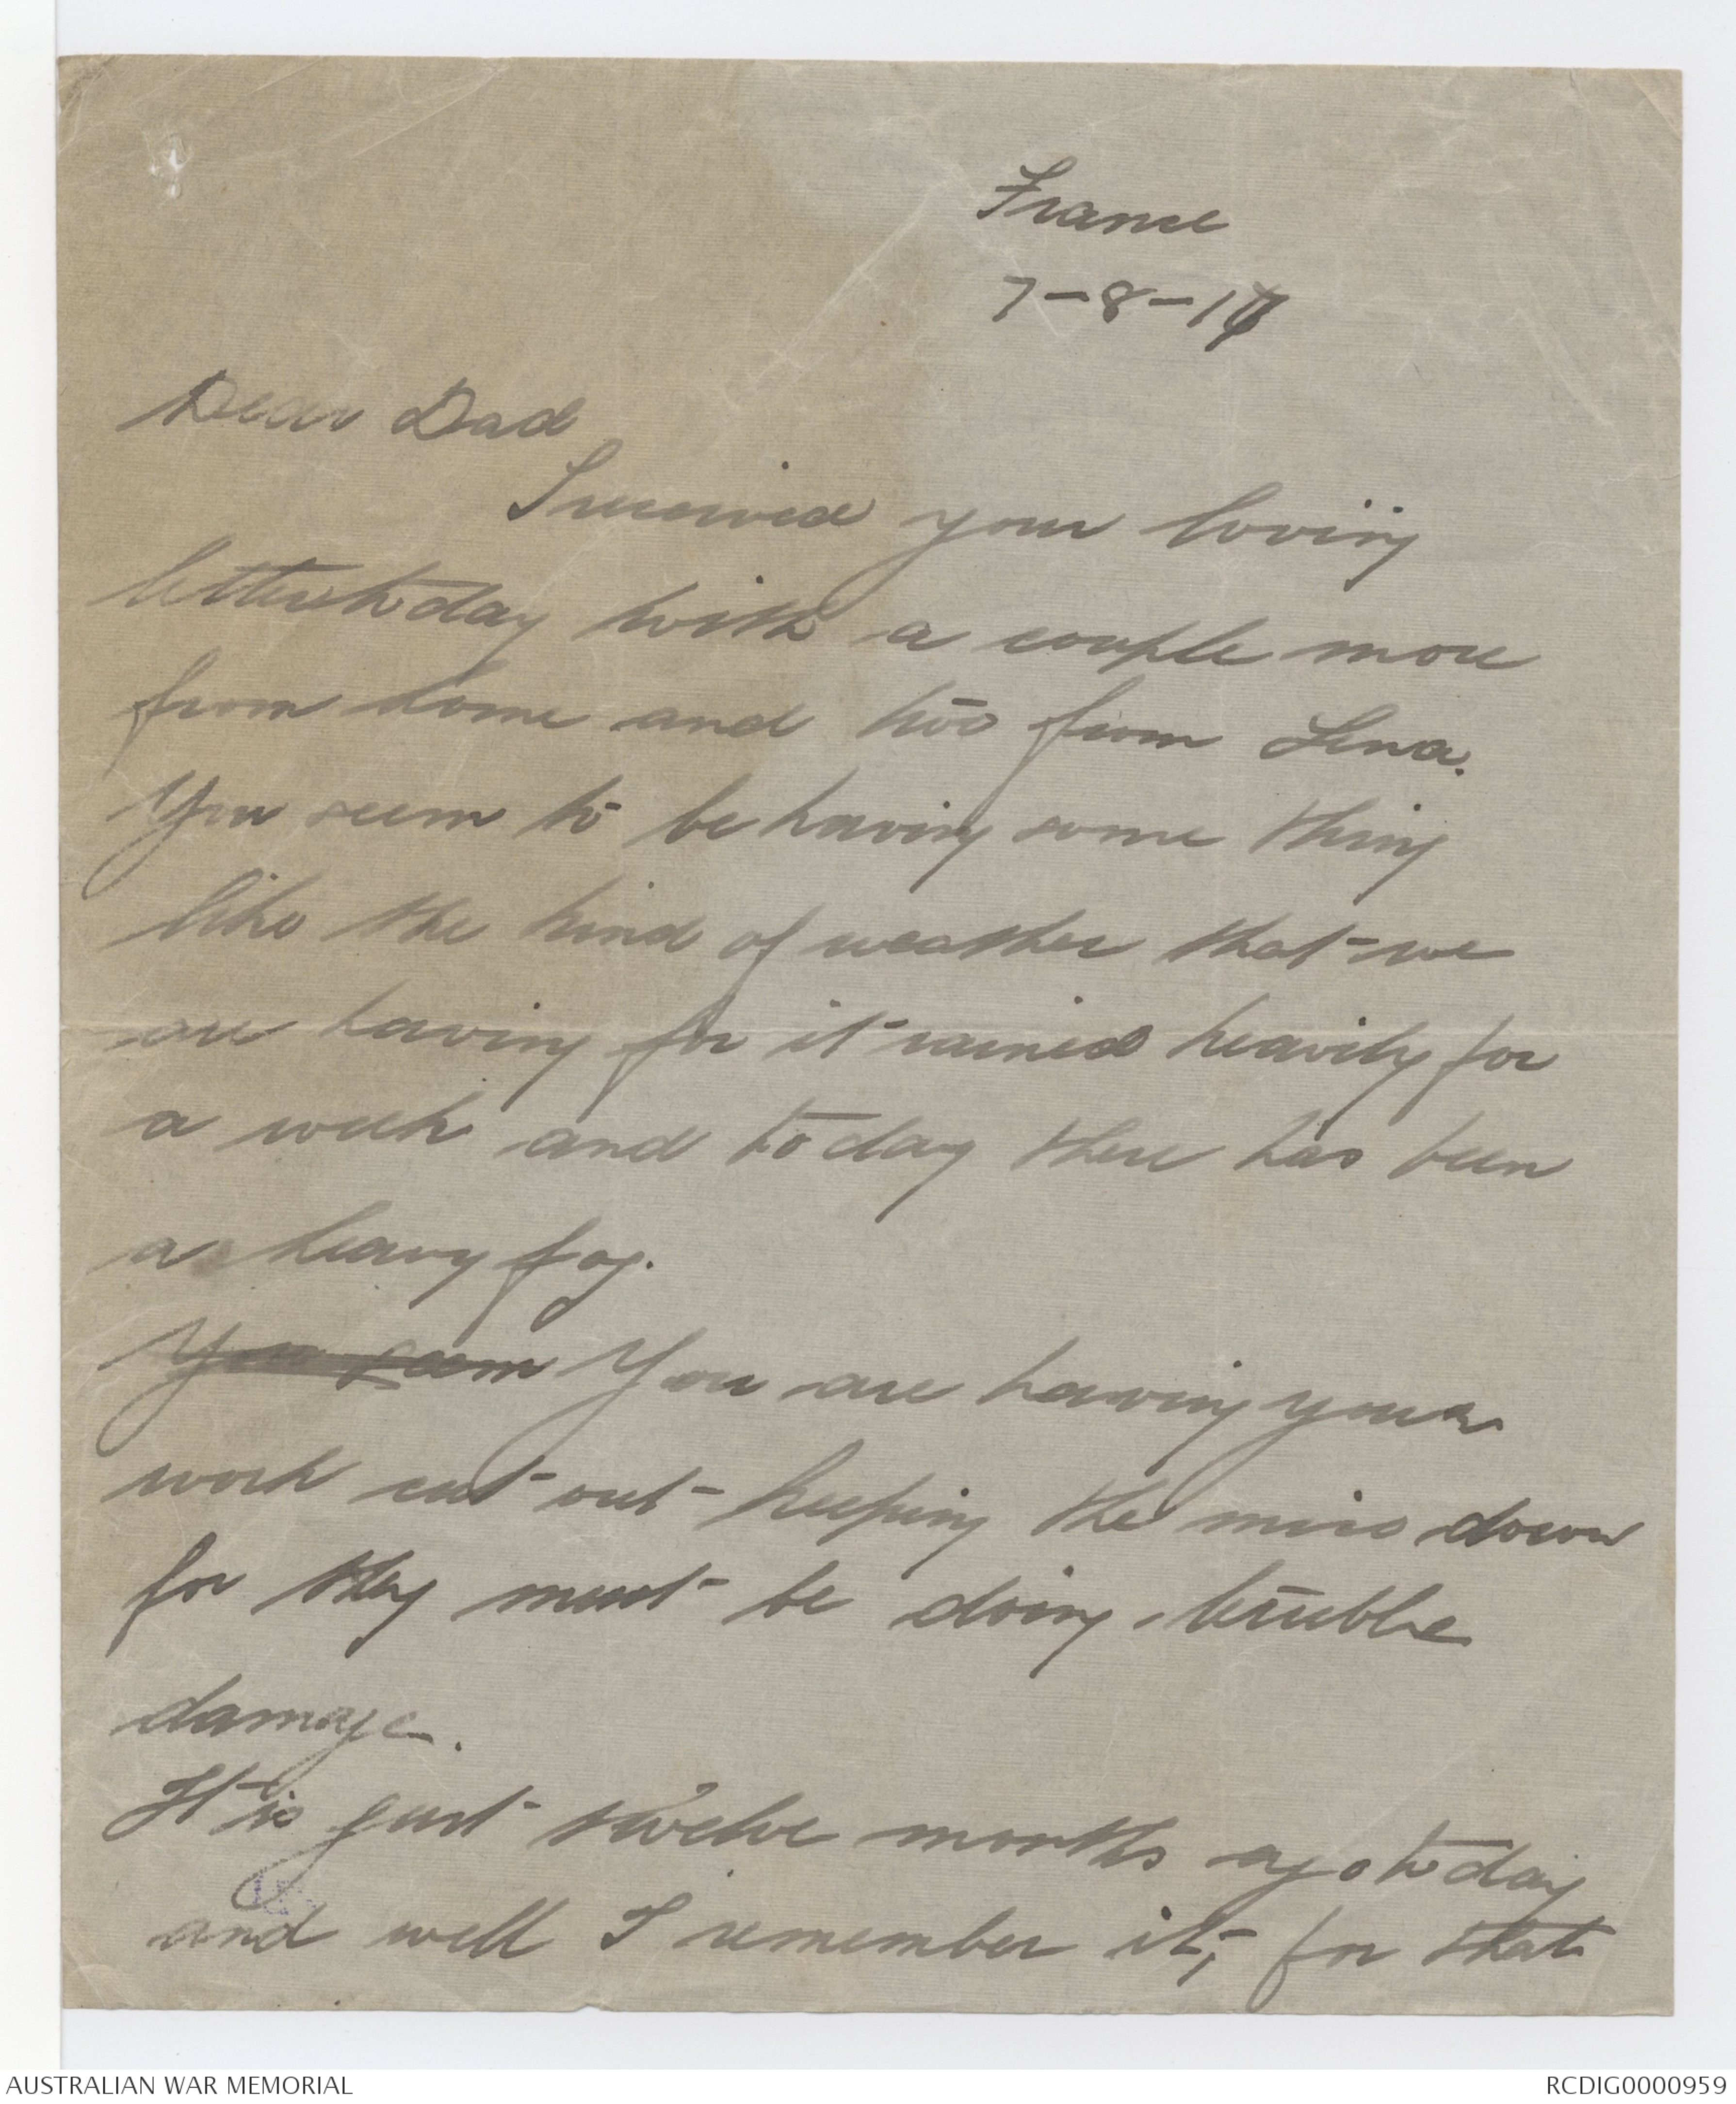 France
7-8-17
Dear Dad
I received your loving
letter today with a couple more
from home and two from Lena.
You seem to be having some thing
like the kind of weather that we
are having for it rained heavily for
a week and today there has been
a heavy fog.
You seem You are having your
work cut out keeping the mice down
for they must be doing terrible
damage.
It is just twelve months ago today
and well I remember it, for that
AUSTRALIAN WAR MEMORIAL
RCDIG0000959